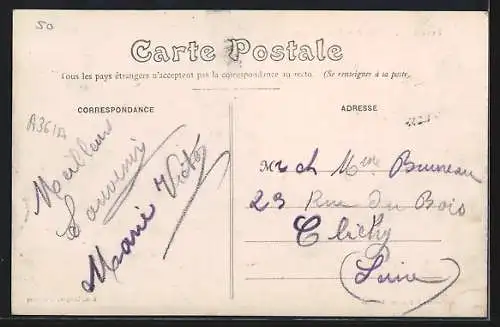 50
Carte Postale
Tous les pays étrangers n'acceptent pas la correspondance au recto. (Se renseigner à la poste.)
CORRESPONDANCE
ADRESSE
Meilleur
Souvenir
Marie Victor
Mr et Mme Bruneau
23 Rue du Bois
Clichy
Seine